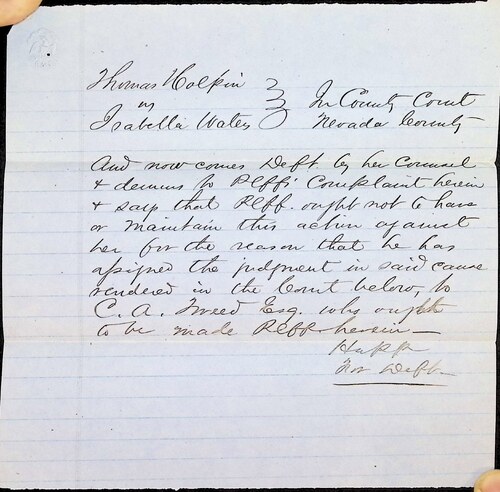 Thomas Holpin
vs
Isabella Wates
In County Court
Nevada County
And now comes Deft by her Counsel
& demurs to Plffs Complaint herein
& says that Plff. ought not to have
or maintain this action against
her for the reason that he has
assigned the judgment in said cause
rendered in the Court below, to
C. A. Tweed Esq. who ought
to be made Plff herein—
Hupp
for Deft—